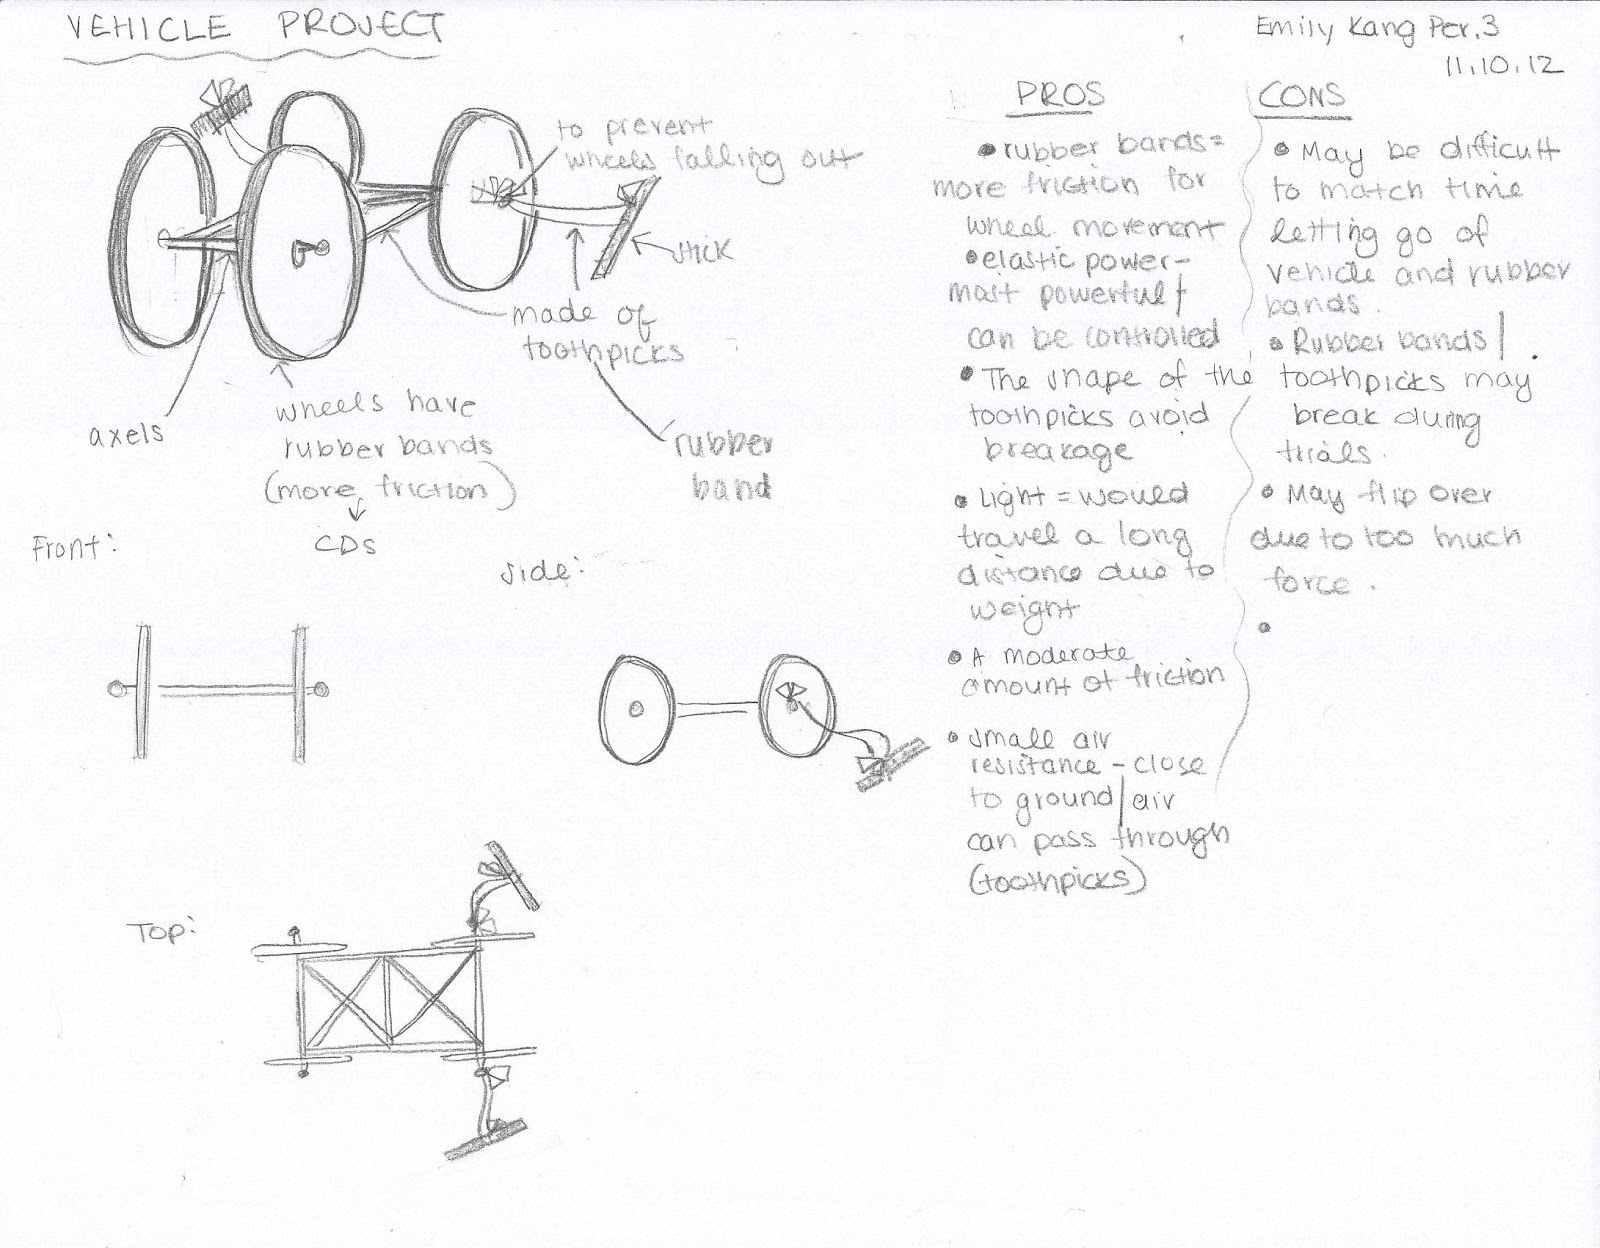 VEHICLE PROJECT
Emily Kang Per.3
11.10.12
to prevent
wheels falling out
stick
made of
toothpicks
rubber
band
axels
wheels have
rubber bands
(more friction)
CDs
Front:
side:
Top:
PROS
• rubber bands=
more friction for
wheel movement
• elastic power-
most powerful/
can be controlled
• The shape of the
toothpicks avoid
breakage
• Light = would
travel a long
distance due to
weight
• A moderate
amount of friction
• small air
resistance - close
to ground/air
can pass through
(toothpicks)
CONS
• May be difficult
to match time
letting go of
vehicle and rubber
bands.
• Rubber bands/
toothpicks may
break during
trials.
• May flip over
due to too much
force.
•